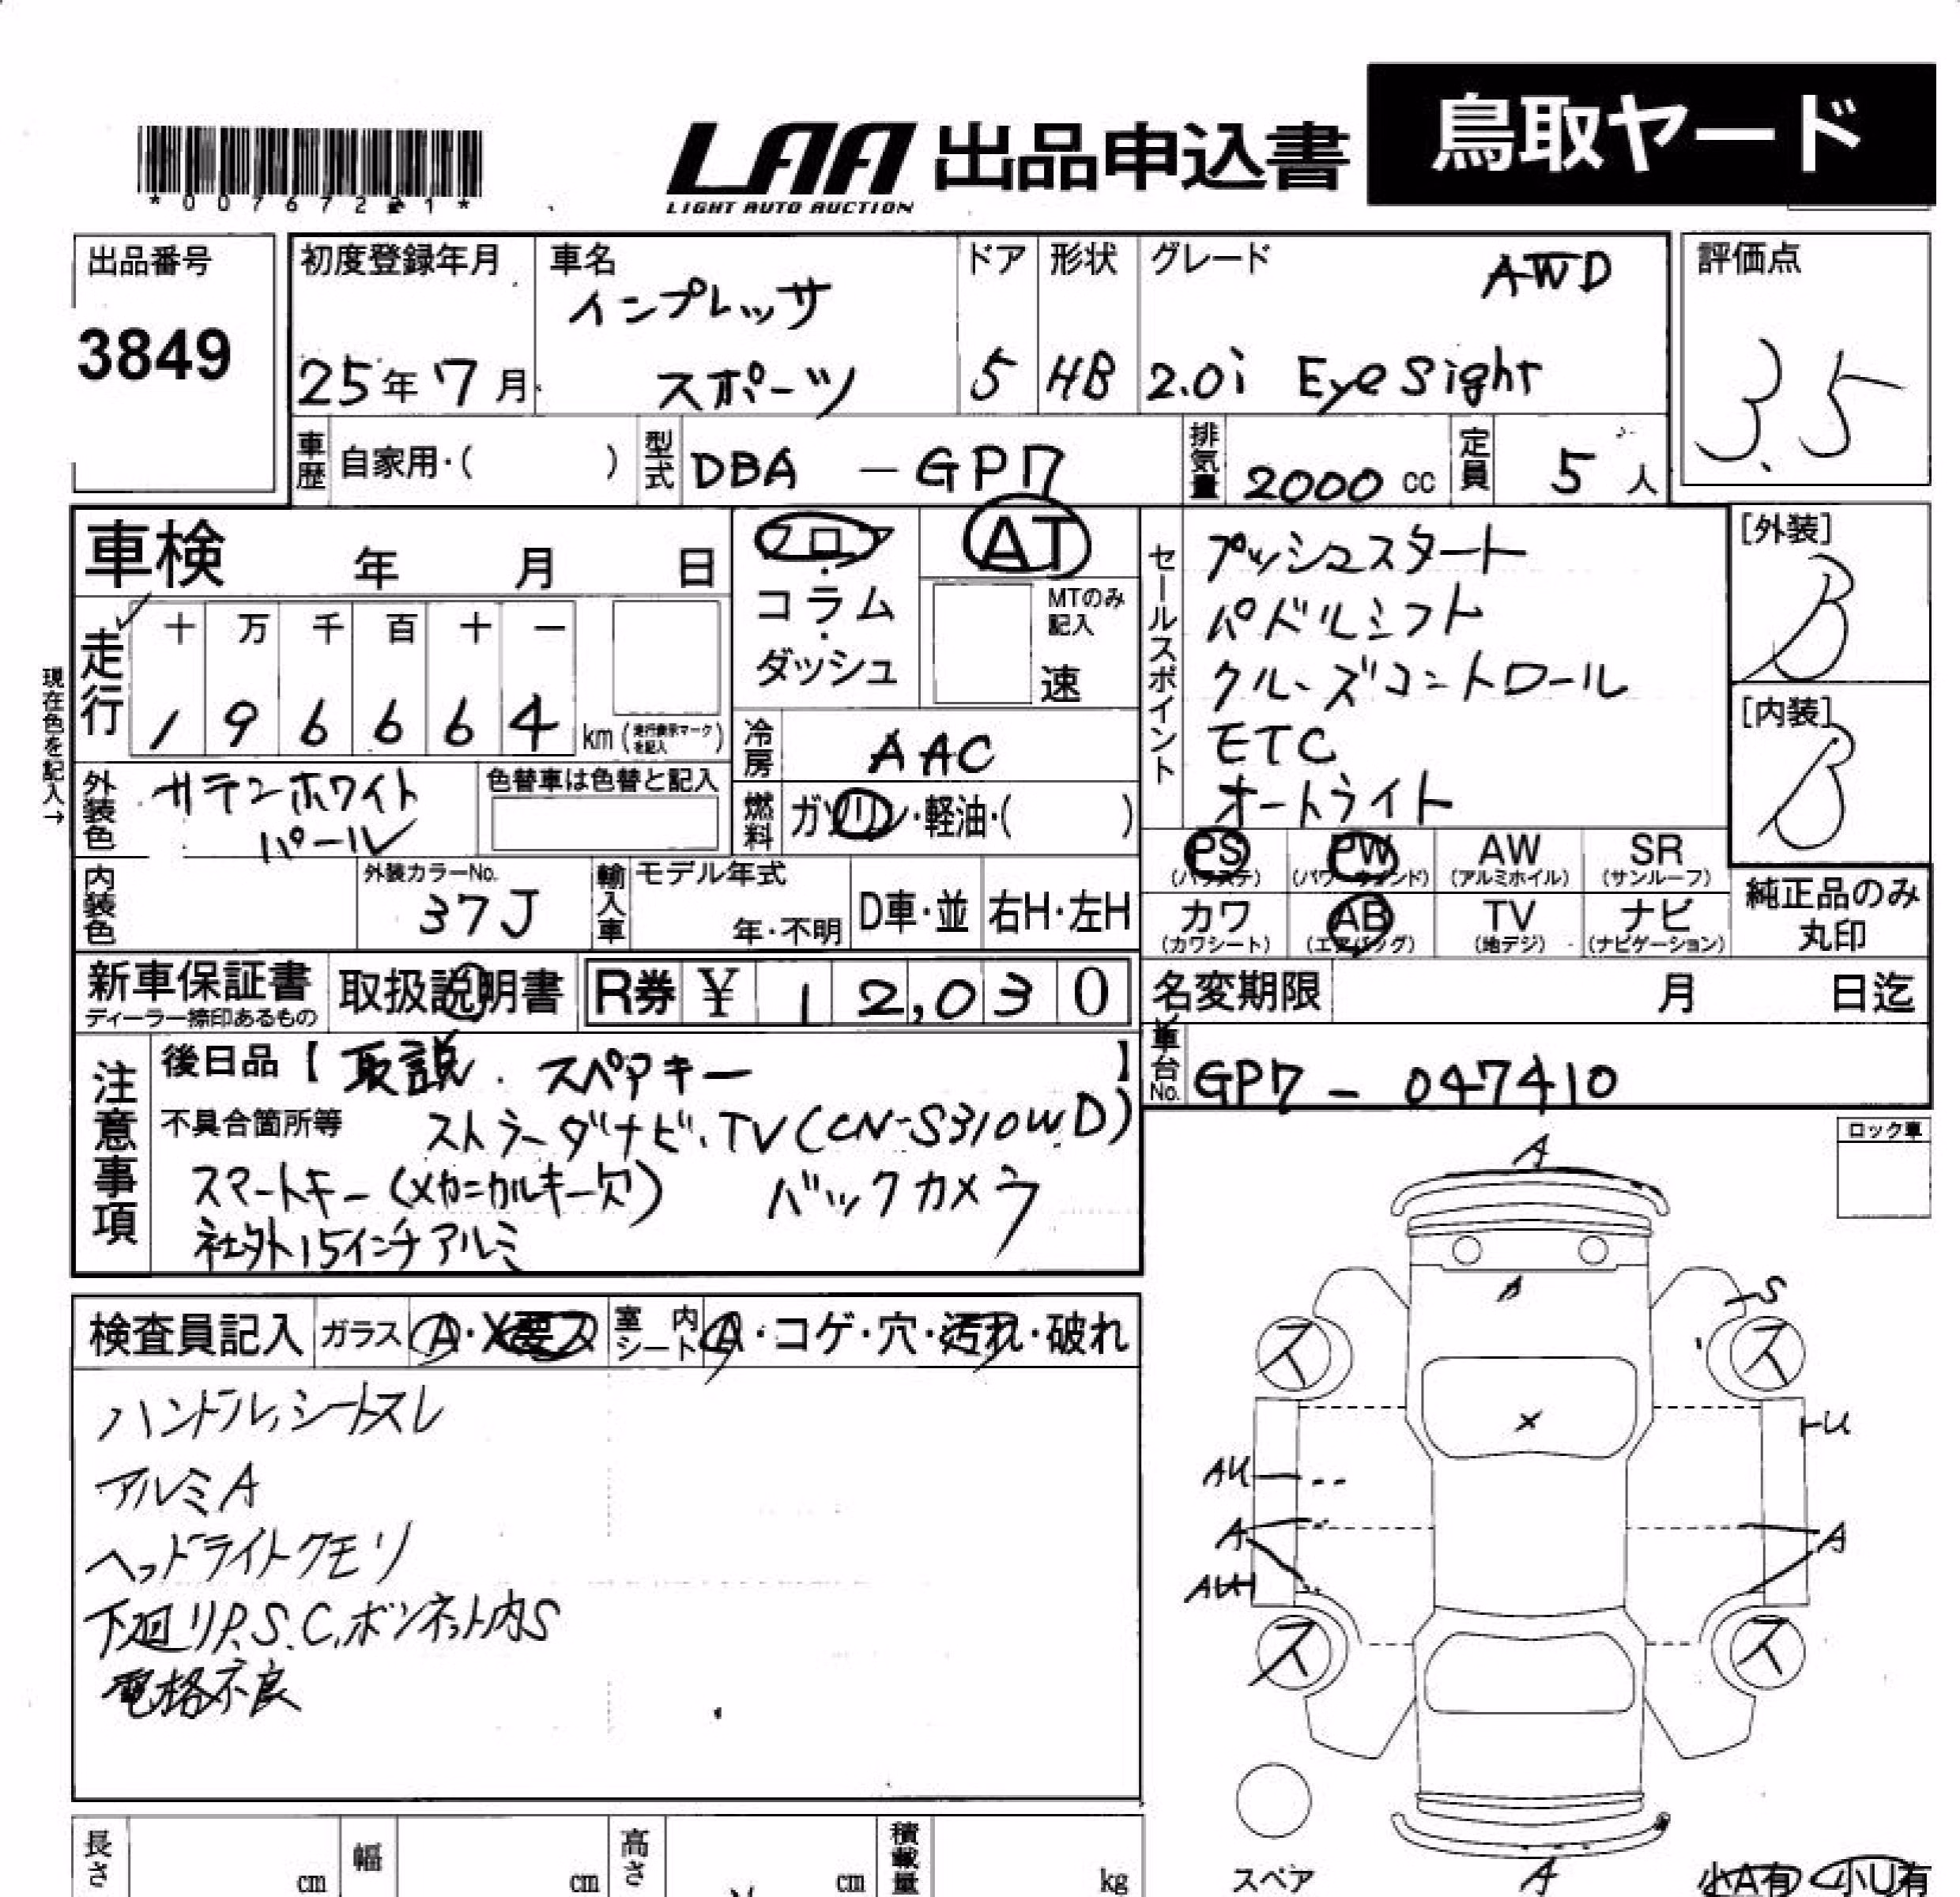 鳥取ヤード
LAA 出品申込書
LIGHT AUTO AUCTION
出品番号
3849
初度登録年月
25年7月
車名
インプレッサ
スポーツ
ドア
5
形状
HB
グレード
AWD
2.0i EyeSight
評価点
3.5
車歴 自家用・( )
型式 DBA -GP7
排気量 2000 cc
定員 5 人
車検 年 月 日
フロア・コラム・ダッシュ
AT
MTのみ記入
速
セールスポイント
プッシュスタート
パドルシフト
クルーズコントロール
ETC
オートライト
[外装]
B
[内装]
B
現在色を記入→
走行
十 万 千 百 十 一
1 9 6 6 6 4 km (走行表示マークを記入)
冷房 AAC
外装色 サテンホワイト
パール
色替車は色替と記入
燃料 ガソリン・軽油・( )
PS AW SR
PW
(パワステ) (パワーウィンド) (アルミホイル) (サンルーフ)
カワ AB TV ナビ
(カワシート) (エアバッグ) (地デジ) (ナビゲーション)
純正品のみ
丸印
内装色
外装カラーNo.
37J
輸入車 モデル年式
年・不明
D車・並 右H・左H
新車保証書
ディーラー捺印あるもの
取扱説明書
R券 ¥ 12,030
名変期限 月 日迄
車台No. GP7 - 047410
注意事項
後日品【取説.スペアキー】
不具合箇所等 ストラーダナビ.TV(CN-S310WD)
スマートキー(メカニカルキー欠) バックカメラ
社外15インチアルミ
ロック車
検査員記入 ガラス A・X要ス 室内シート A・コゲ・穴・汚れ・破れ
ハンドル,シートスレ
アルミA
ヘッドライトクモリ
下廻りP.S.C,ボンネット内S
電格不良
A
A
S
ス ス
X
U
AU
A A
AUH
ス ス
スペア
A
小A有 小U有
長さ cm 幅 cm 高さ cm 積載量 kg